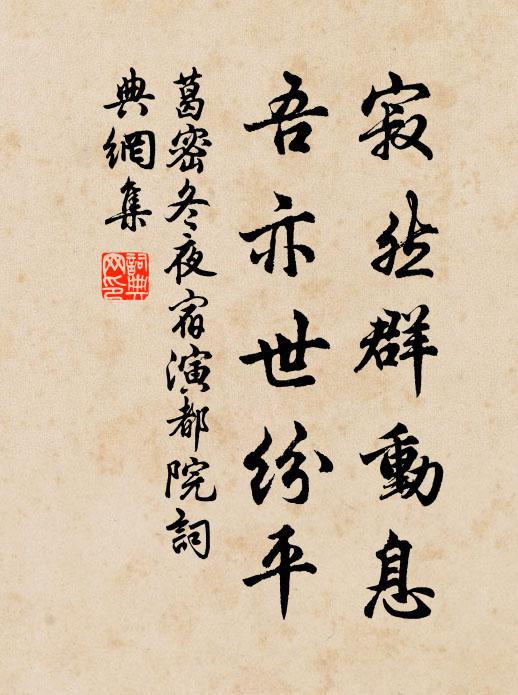 寂然群動息
吾亦世紛平
葛密冬夜宿演都院詞
典網集
詞典
网印